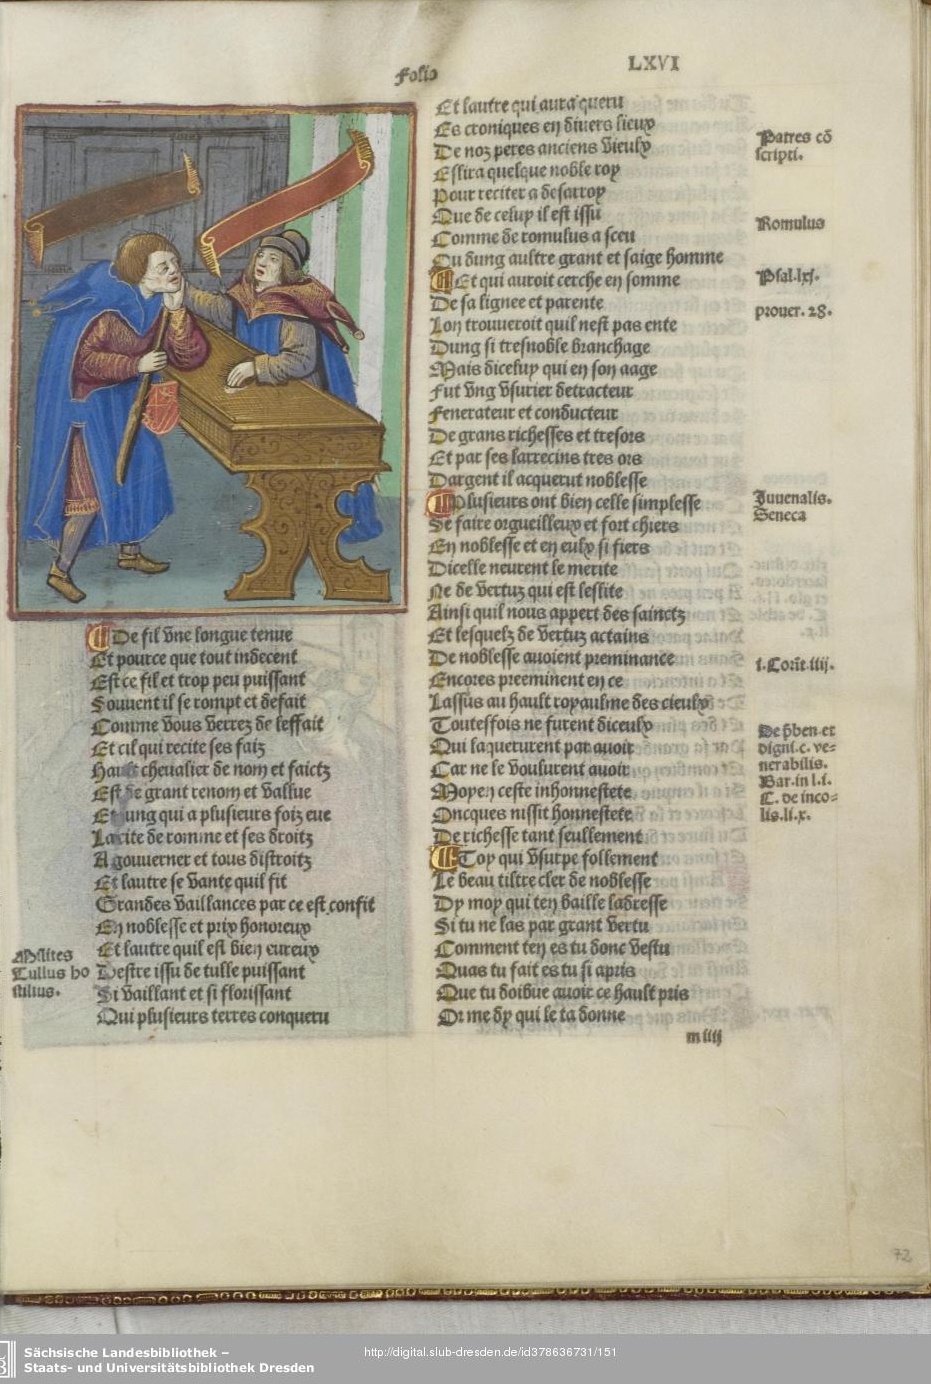 Folio
LXVI
De fil vne longue tenue
Et pource que tout indecent
Est ce fil et trop peu puissant
Souuent il se rompt et defait
Comme vous verrez de leffait
Et cil qui recite ses faiz
Hault cheualier de nom et faictz
Est de grant renom et vallue
Et ung qui a plusieurs foiz eue
La cite de romme et ses droitz
A gouuerner et tous distroitz
Et lautre se vante quil fit
Grandes vaillances par ce est confit
En noblesse et prix honoreux
Et lautre quil est bien eureux
Destre issu de tulle puissant
Si vaillant et si florissant
Qui plusieurs terres conqueru
Milites
Tullus ho
stilius.
Et lautre qui aura queru
Es croniques en diuers lieux
De noz peres anciens vieulx
Eslira quelque noble roy
Pour reciter a desarroy
Que de celuy il est issu
Comme de romulus a sceu
Ou dung aultre grant et saige homme
Et qui auroit cerche en somme
De sa lignee et parente
Lon trouueroit quil nest pas ente
Dung si tresnoble branchage
Mais diceluy qui en son aage
Fut vng vsurier detracteur
Fenerateur et conducteur
De grans richesses et tresors
Et par ses larrecins tres ors
Dargent il acquerut noblesse
Plusieurs ont bien celle simplesse
Se faire orgueilleux et fort chiers
En noblesse et en eulx si fiers
Dicelle neurent le merite
Ne de vertuz qui est leslite
Ainsi quil nous appert des sainctz
Et lesquelz de vertuz actains
De noblesse auoient preminance
Encores preeminent en ce
Lassus au hault royaulme des cieulx
Toutesfois ne furent diceulx
Qui laquerurent par auoir
Car ne le voulurent auoir
Moyen ceste inhonnestete
Oncques nissit honnestete
De richesse tant seullement
Toy qui vsurpe follement
Le beau tiltre cler de noblesse
Dy moy qui ten baille ladresse
Si tu ne las par grant vertu
Comment ten es tu donc vestu
Quas tu fait es tu si apris
Que tu doibue auoir ce hault pris
Or me dy qui le ta donne
m iiij
Patres cō
scripti.
Romulus
Psal.lxj.
prouer. 28.
Juuenalis.
Seneca
i.Corīt.iiij.
De p̄ben et
digni.c. ve=
nerabilis.
Bar.in l.i.
C. de inco=
lis.li.x.
72
Sächsische Landesbibliothek –
Staats- und Universitätsbibliothek Dresden
http://digital.slub-dresden.de/id378636731/151